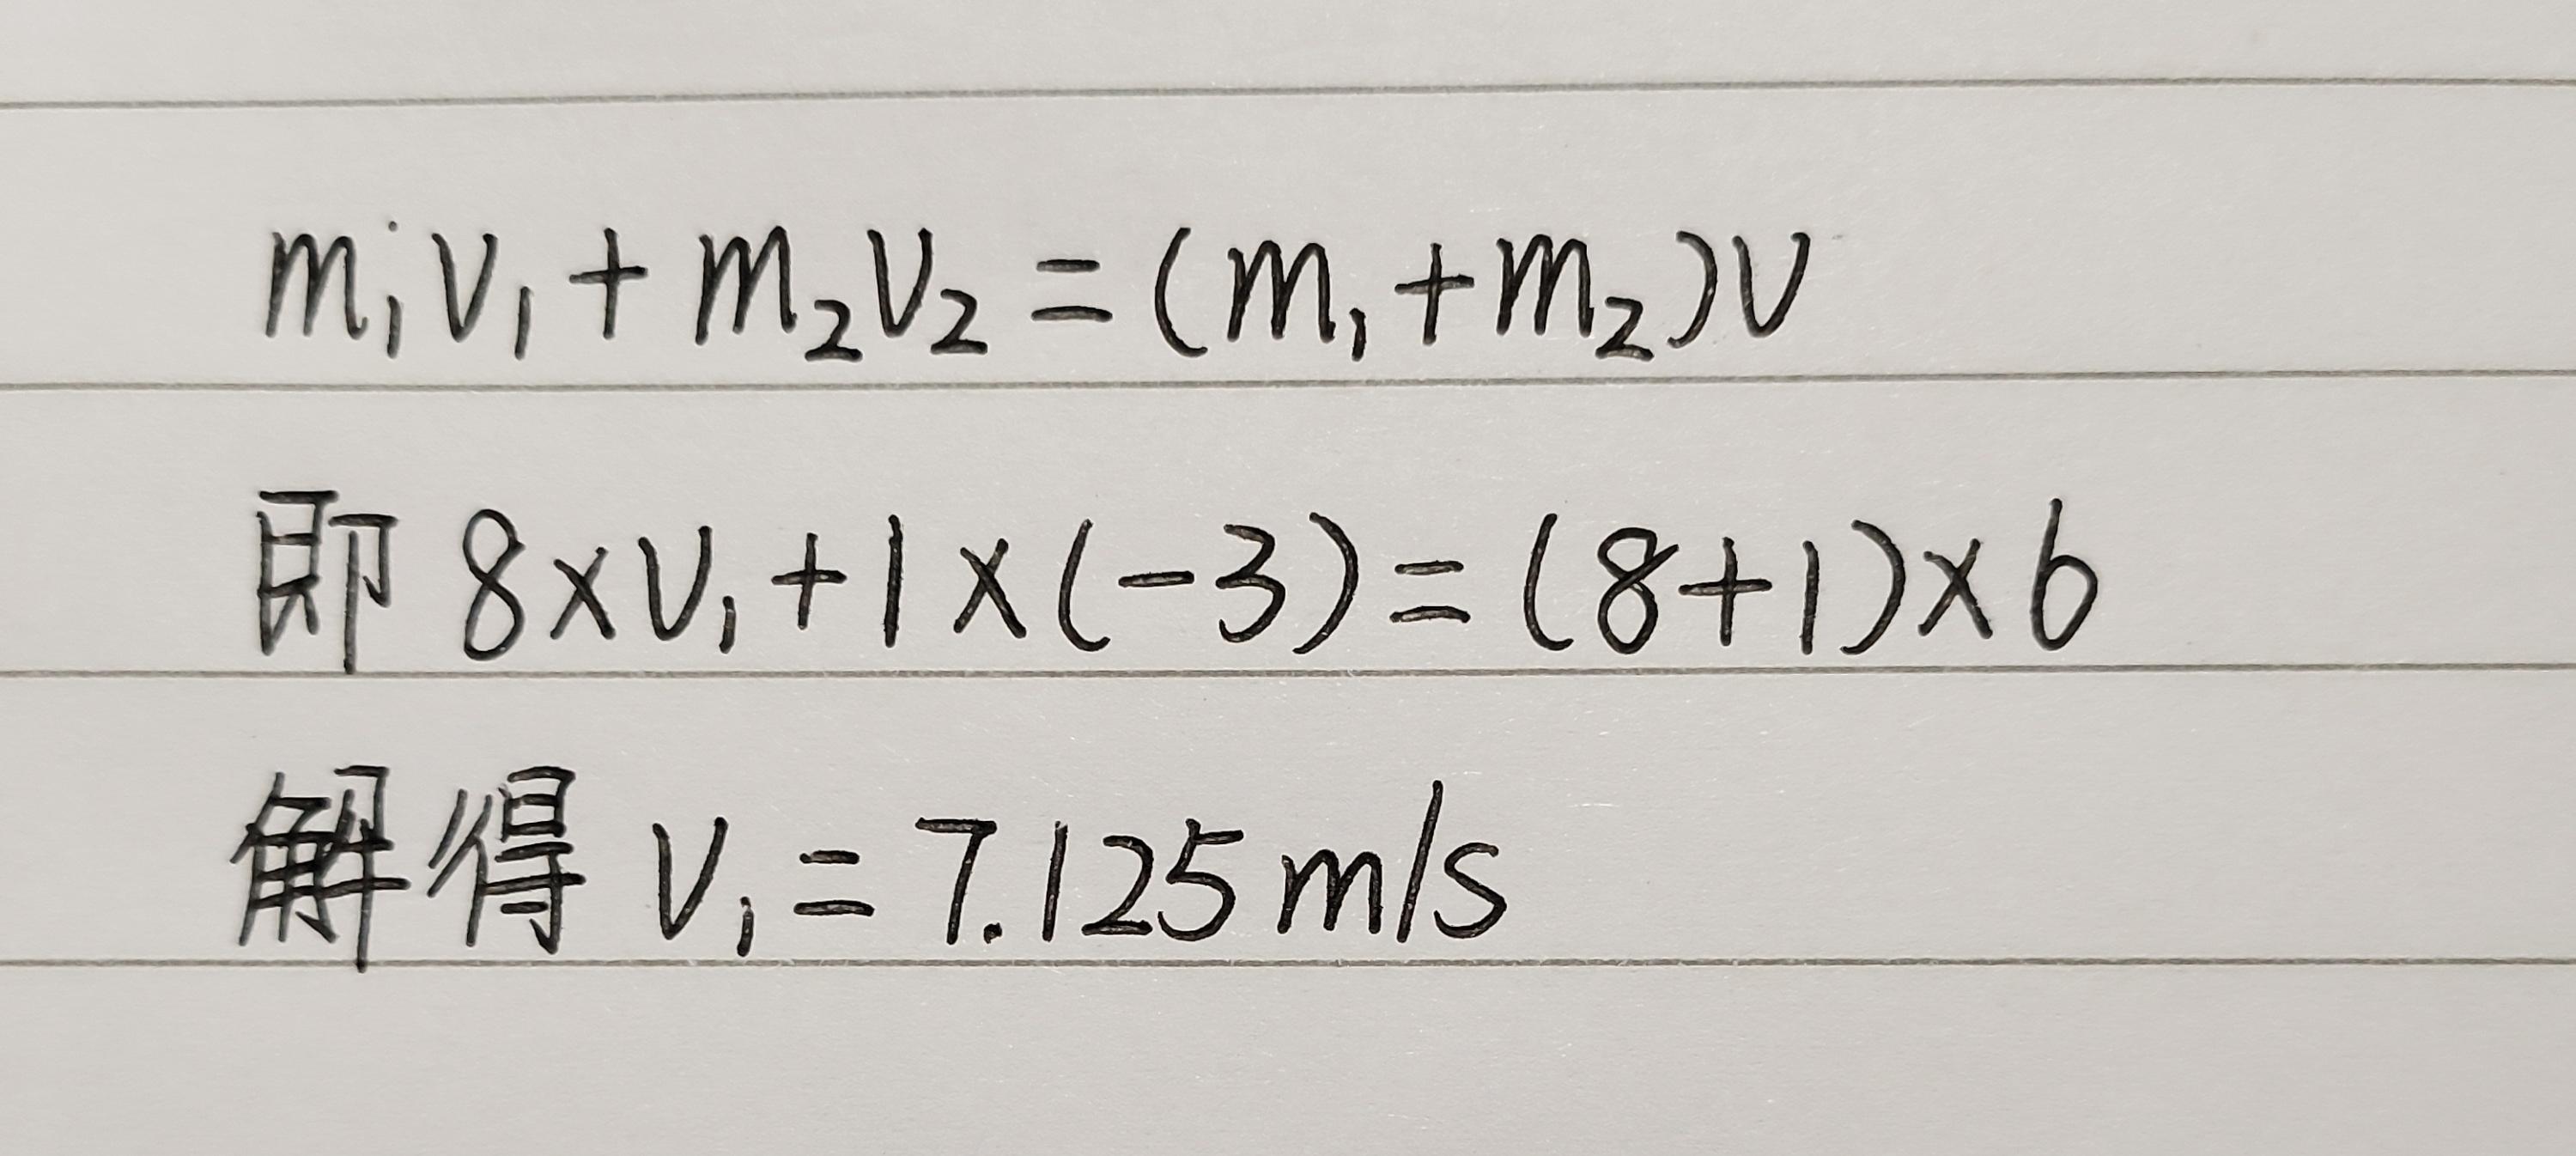 m₁v₁ + m₂v₂ = (m₁ + m₂)v
即 8×v₁ + 1×(-3) = (8+1)×6
解得 v₁ = 7.125 m/s